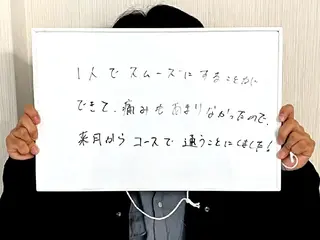 1人でスムーズにすることが
できて、痛みもあまりなかったので、
来月からコースで通うことにしました!